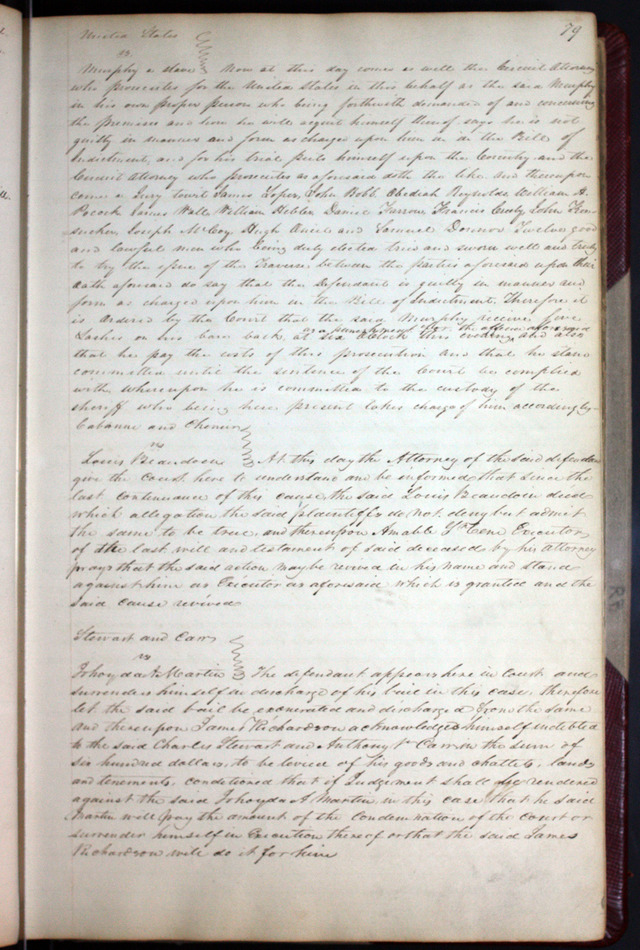 79
United States
vs
Murphy a slave Now at this day comes as well the Circuit Attorney
who prosecutes for the United States in this behalf as the said Murphy
in his own proper person who being forthwith demanded of and concerning
the premises and how he will acquit himself thereof says he is not
guilty in manner and form as charged upon him in the Bill of
Indictment, and for his trial puts himself upon the Country and the
Circuit Attorney who prosecutes as aforesaid doth the like and thereupon
came a Jury towit James Loper, John Bobb Obediah Reynolds William H.
Pocock James Wall William Hebler Daniel Farrow Francis Creely John
Joseph McCoy Hugh and Samuel Twelve good
and lawful men who being duly elected tried and sworn well and truly
to try the issue of the Traverse between the parties aforesaid upon their
oath aforesaid do say that the defendant is guilty in manner and
form as charged upon him in the Bill of Indictment. Therefore it
is Ordered by the Court that the said Murphy receive five
as a punishment for the offence aforesaid
Lashes on his bare back, at six OClock this evening, and also
that he pay the costs of this prosecution and that he stand
committed until the sentence of the Court be complied
with, whereupon he is committed to the custody of the
sheriff who being here present takes charge of him accordingly
Cabanne and
vs
Louis Beaudoin At this day the Attorney of the said defendant
give the court here to understand and be informed that since the
last continuance of this cause the said Louis Beaudoin died
which allegation the said plaintiffs do not deny but admit
the same to be true, and thereupon Amable Executor
of the last will and testament of said deceased by his attorney
prays that the said action may be revived in his name and stand
against him as Executor as aforesaid which is granted and the
said cause revived
Stewart and Carr
vs
Johoyda A Martin The defendant appears here in Court and
surrenders himself in discharge of his bail in this case, therefore
let the said bail be exonerated and discharged from the same
and thereupon James Richardson acknowledges himself indebted
to the said Charles Stewart and Anthony V Carr in the sum of
six hundred dollars, to be levied of his goods and chattels, lands
and tenements, conditioned that if Judgement shall be rendered
against the said Johoyda A. Martin in this case that he said
Martin will pay the amount of the condemnation of the court or
surrender himself in Execution thereof or that the said James
Richardson will do it for him